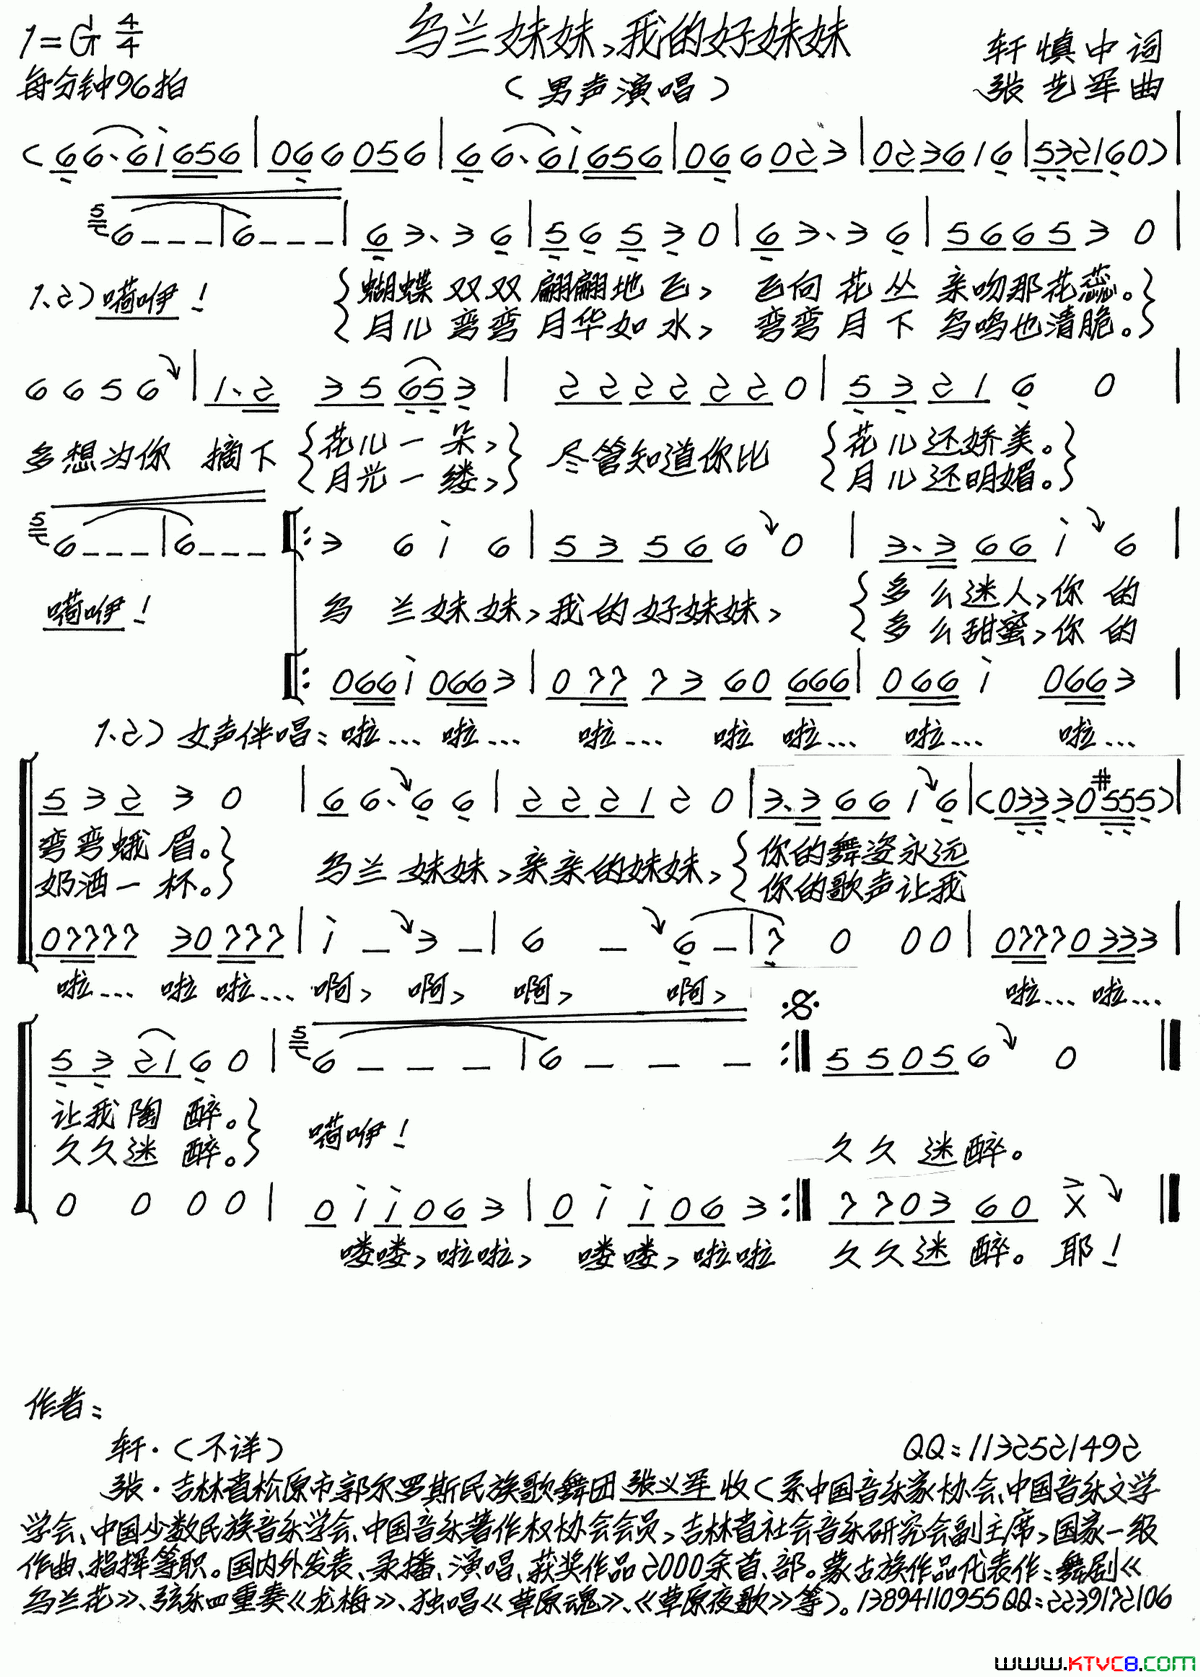 1=G 4/4
乌兰妹妹,我的好妹妹
轩慎中词
每分钟96拍
(男声演唱)
张艺军曲
(6 6·6i656|066056|6 6·6i656|066023|023616|532160)|
5 6---|6---|6 3·3 6|5 6 5 3 0|6 3·3 6|5665 3 0|
1.2)嗬咿! {蝴蝶双双翩翩地飞, 飞向花丛亲吻那花蕊。}
{月儿弯弯月华如水, 弯弯月下鸟鸣也清脆。}
6 6 5 6|1·2 3 5 65 3|2 2 2 2 2 2 0|5 3 2 1 6 0|
多想为你 摘下 {花儿一朵,} 尽管知道你比 {花儿还娇美。}
{月光一缕,} {月儿还明媚。}
5 6---|6---‖:3 6 i 6|5 3 5 6 6 0|3·3 6 6 i 6|
嗬咿! 乌兰妹妹,我的好妹妹, {多么迷人,你的
{多么甜蜜,你的
‖:066i 066 3|0 77 7 3 60 666|066 i 066 3|
1.2)女声伴唱:啦… 啦… 啦… 啦 啦… 啦… 啦…
5 3 2 3 0|6 6·6 6|2 2 2 1 2 0|3·3 6 6 1 6|(033 30 #555)|
弯弯蛾眉。} 乌兰妹妹,亲亲的妹妹, {你的舞姿永远
奶酒一杯。} {你的歌声让我
07777 30 777|i - 3 -|6 - 6 -|7 0 0 0|07770 333|
啦… 啦 啦… 啊, 啊, 啊, 啊, 啦… 啦…
5 3 21 6 0|5 6 - - -|6 - - -:‖5 5 0 5 6 0‖
让我陶醉。} 嗬咿!
久久迷醉。} 久久迷醉。
0 0 0 0|0 i i 0 6 3|0 i i 0 6 3:‖7 7 0 3 6 0 X‖
喽喽,啦啦, 喽喽,啦啦 久久迷醉。耶!
作者:
轩·(不详) QQ:1132521492
张·吉林省松原市郭尔罗斯民族歌舞团张义军收(系中国音乐家协会、中国音乐文学
学会、中国少数民族音乐学会、中国音乐著作权协会会员,吉林省社会音乐研究会副主席,国家一级
作曲、指挥等职。国内外发表、录播、演唱、获奖作品2000余首、部。蒙古族作品代表作:舞剧《
乌兰花》、弦乐四重奏《龙梅》、独唱《草原魂》、《草原夜歌》等)。13894110955QQ:2239172106
www.KTVC8.com